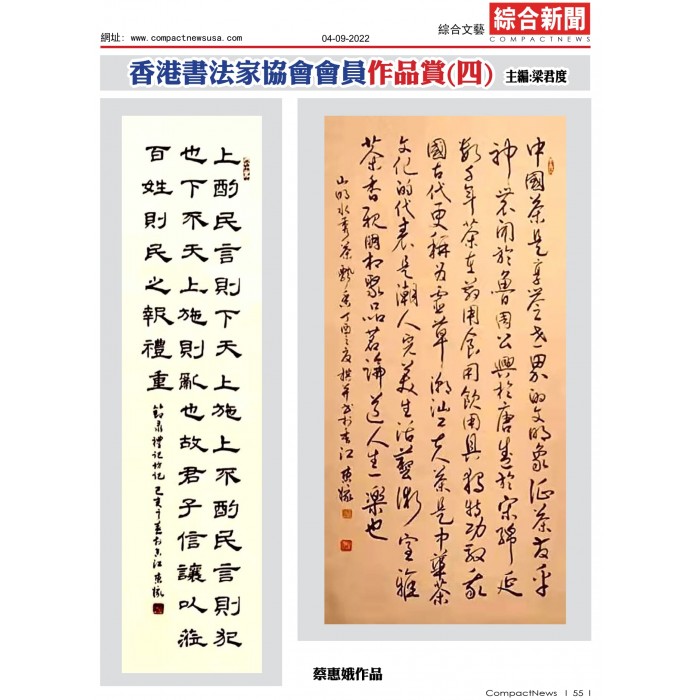 網址: www.compactnewsusa.com
04-09-2022
綜合文藝
綜合新聞
COMPACTNEWS
香港書法家協會會員作品賞(四) 主編:梁君度
上酌民言則下天上施上不酌民言則犯
也下不天上施則亂也故君子信讓以蒞
百姓則民之報禮重
禮記坊記己亥
中國茶是享譽世界的文明象征茶发乎
神農聞於魯周公興於唐盛於宋綿延
數千年茶在葯用食用飲用具獨特功效我
國古代更稱为靈草潮汕工夫茶是中華茶
文化的代表是潮人完美生活藝術室雅
茶香親朋相聚品茗論道人生一樂也
山明水秀茶飄香丁酉之夏撰并书於香江惠娥
蔡惠娥作品
CompactNews | 55 |